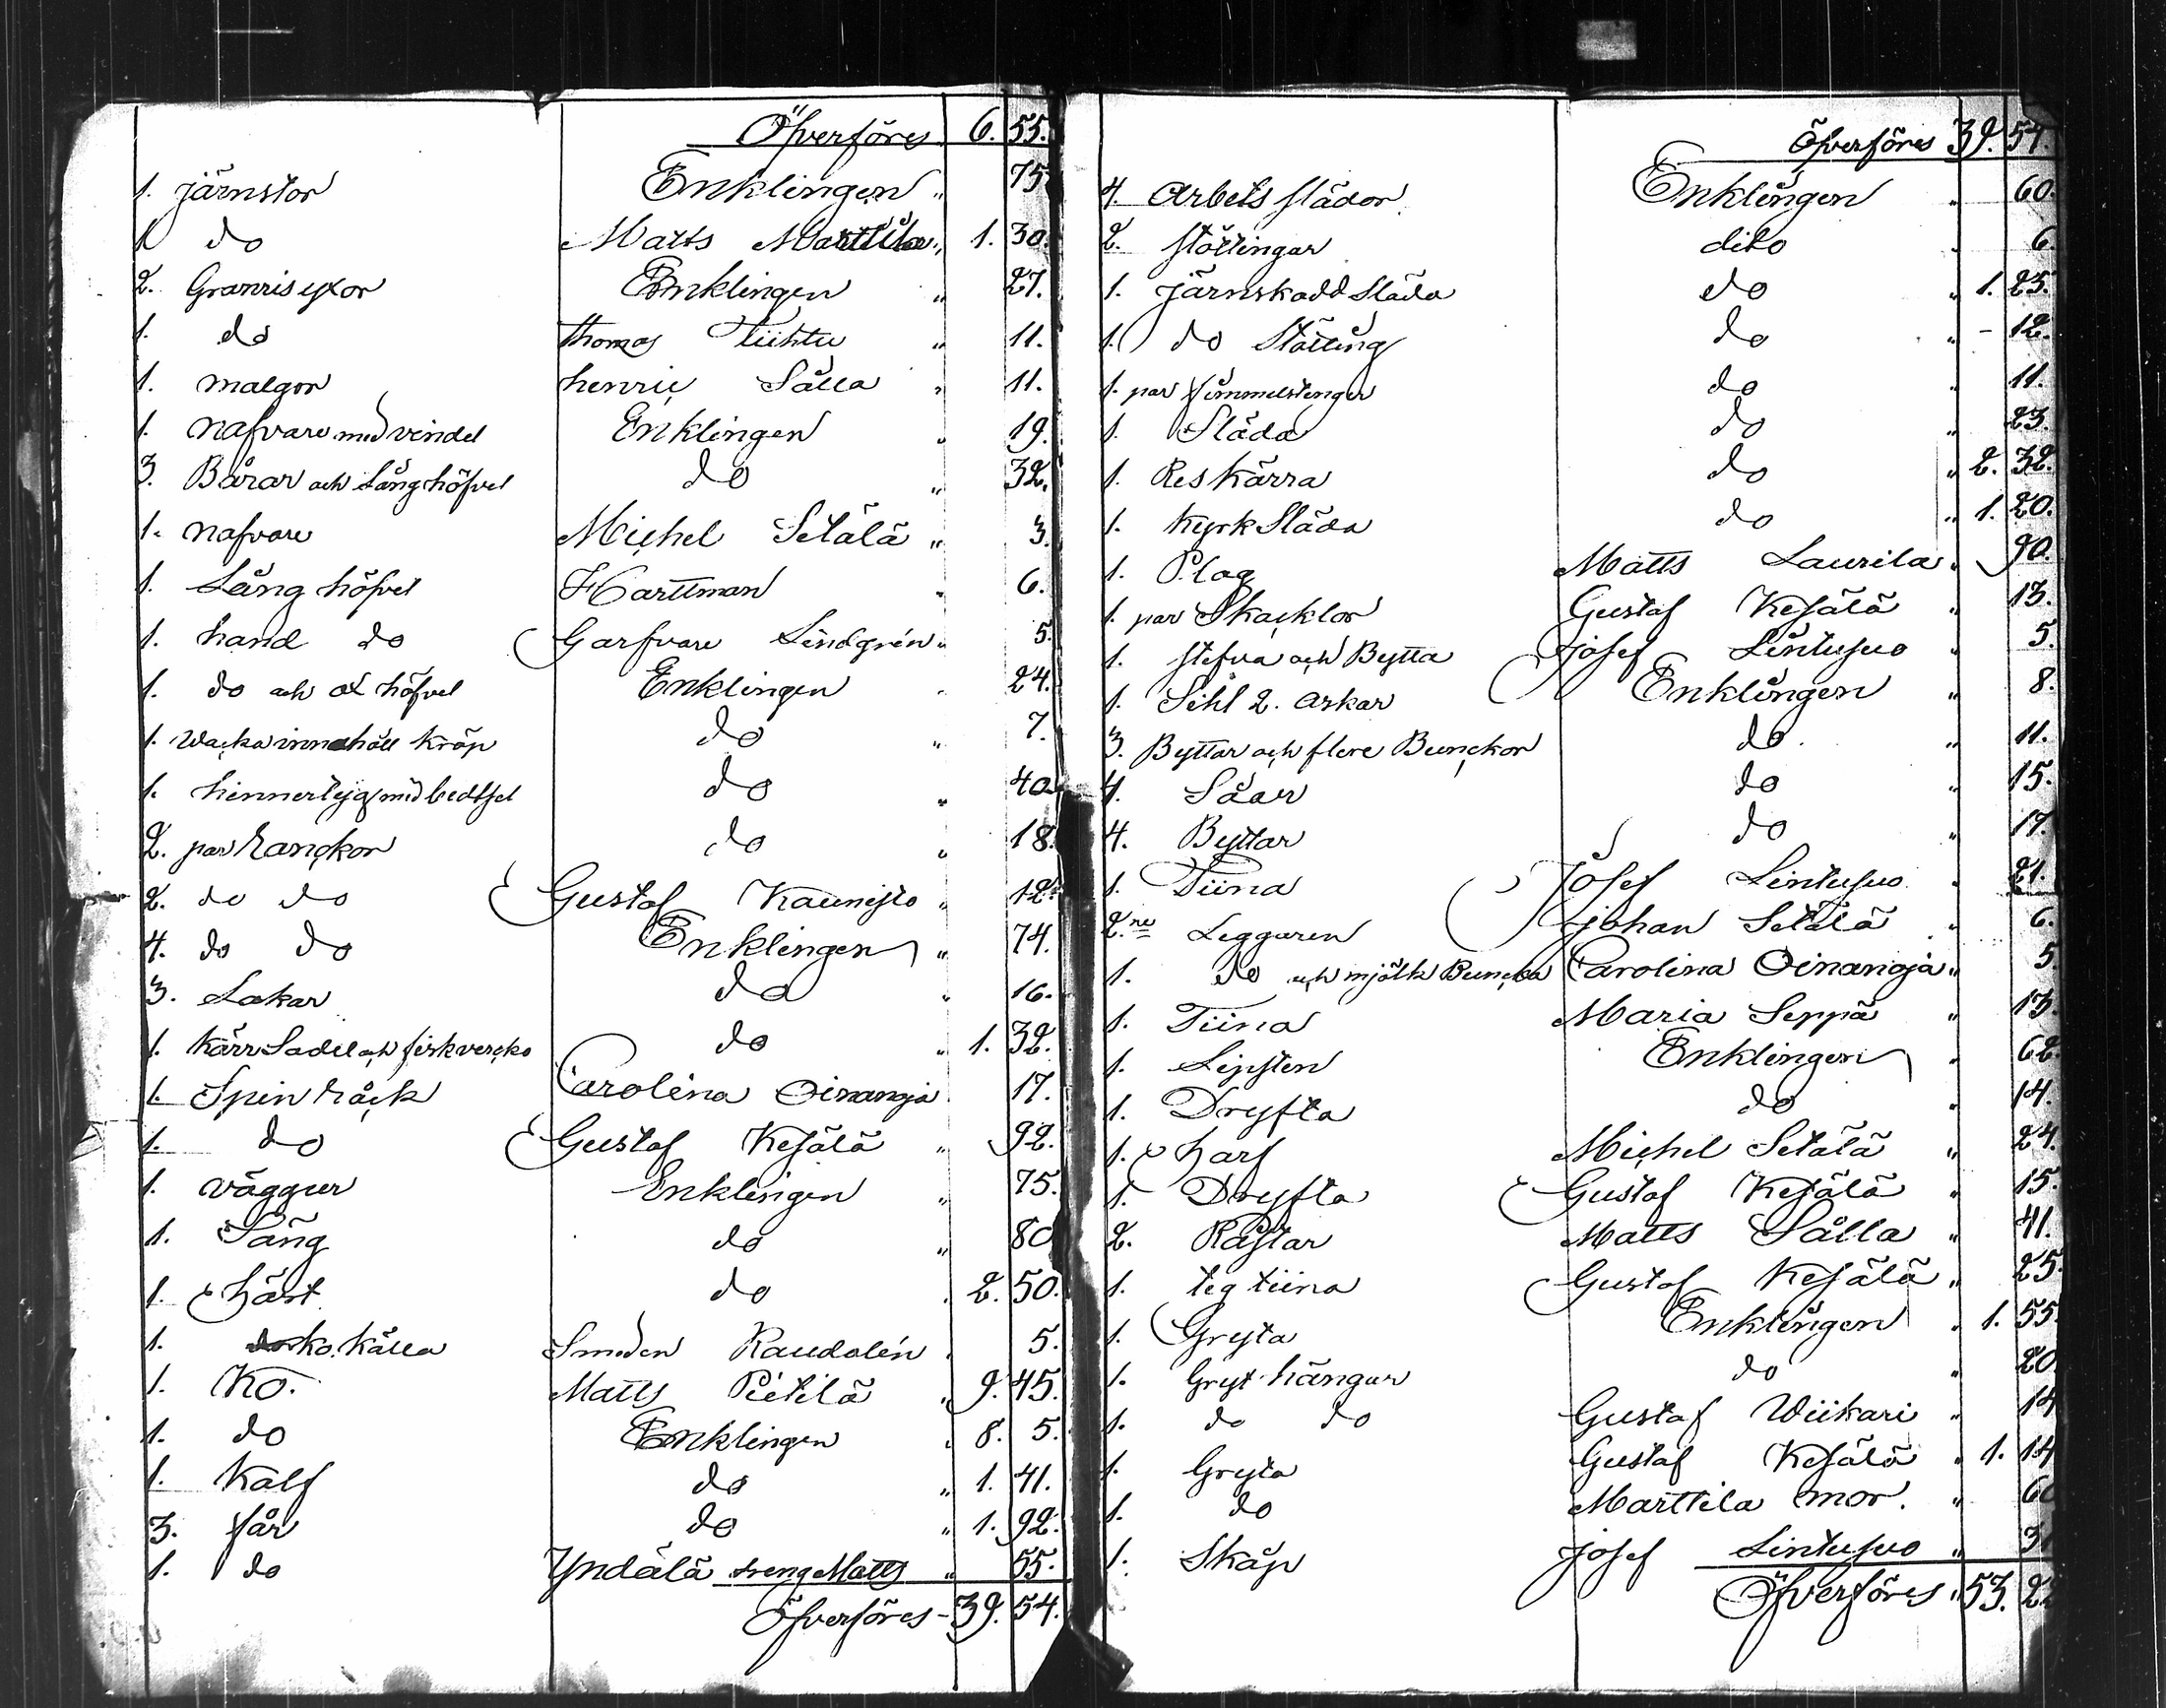 Öfverföres 6. 55.
1. järnstör Enklingen " 75
1 do Matts Marttila " 1. 30.
2. Granris yxor Enklingen " 27.
1. do Thomas Tuhtu " 11.
1. malgor henric Sålla " 11.
1. nafvare med vindel Enklingen " 19.
3. Bårar och Lång höfvel do " 32.
1. nafvare Michel Setälä " 3.
1. Lång höfvel Harttman " 6.
1. hand do Garfvare Lindgrén " 5
1. do och ox höfvel Enklingen " 24.
1. Wacka innehåll kråp do " 7.
1. hinnertyg med bedtsel do " 40
2. par Ranckor do " 18.
2. do do Gustaf Kaunisto " 12.
4. do do Enklingen " 74.
3. Lokar do " 16.
1. kärr Sadel och fiskvercko do " 1. 32.
1. Spin råck Carolina Oinanoja 17.
1. do Gustaf Kesälä " 92.
1. väggur Enklingen " 75.
1. Säng do " 80
1. häst do " 2. 50.
1. ko. kålla Smeden Raudolén " 5.
1. Ko. Matts Pietilä " 9. 45.
1. do Enklingen " 8. 5.
1. Kalf do " 1. 41.
3. får do " 1. 92.
1. do Yndälä dreng Matts " 55.
Öfverföres - 39. 54.
Öfverföres 39. 54.
4. Arbets slädor Enklingen " 60.
2. stöttingar dito " 6
1. järnskodd Släda do " 1. 25.
1. do Stötting do " - 12.
1. par fimmelstenger do " 11.
1. Släda do " 23.
1. Res kärra do " 2. 32.
1. kyrk Släda do " 1. 20.
1. Plog Matts Laurila " 90.
1. par Skacklor Gustaf Kesälä " 13.
1. stefva och Bytta josef Lintusuo " 5.
1. Sihl 2. askar Enklingen " 8.
3. Byttar och flere Bunckor do " 11.
4. Såar do " 15.
4. Byttar do " 17.
1. Tiina Josef Lintusuo " 21.
2.ne Leggaren johan Setälä " 6.
1. do och mjölk Buncka Carolina Oinanoja " 5
1. Tiina Maria Seppä " 13.
1. Lipsten Enklingen " 62
1. Dryfta do " 14.
1. harf Michel Setälä " 24.
1. Dryfta Gustaf Kesälä " 15.
2. Råstar Matts Sålla " 41.
1. teg tiina Gustaf Kesälä " 25.
1. Gryta Enklingen " 1. 55
1. Gryt hängur do " 20
1. do do Gustaf Wiikari " 14
1. Gryta Gustaf Kesälä " 1. 14
1. do Marttila mor. " 60
1. Skåp josef Lintusuo " 3
Öfverföres " 53. 22